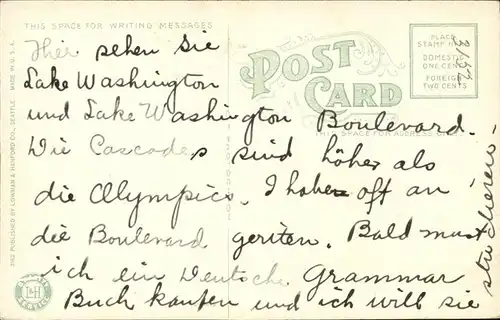 THIS SPACE FOR WRITING MESSAGES
POST CARD
PLACE STAMP HERE
DOMESTIC ONE CENT
FOREIGN TWO CENTS
THIS SPACE FOR ADDRESS ONLY
PUBLISHED BY LOWMAN & HANFORD CO., SEATTLE MADE IN U.S.A.
L&H
Hier sehen Sie
Lake Washington
und Lake Washington Boulevard.
Die Cascades sind höher als
die Olympics. I habe oft an
die Boulevard geriten. Bald must
ich ein Deutsche Grammar
Buch kaufen und ich will sie
studieren!